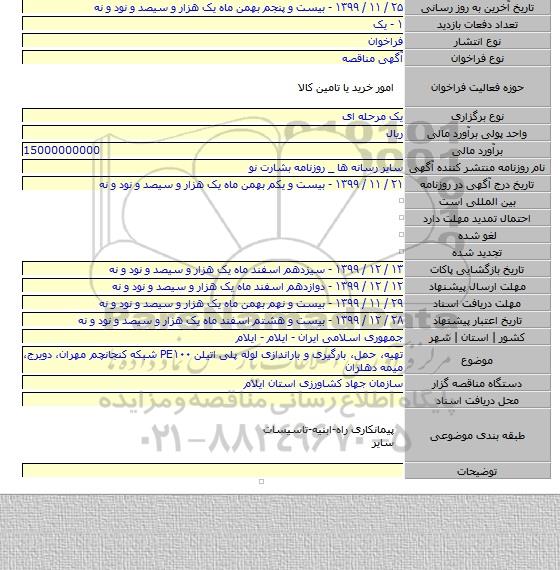 تاریخ آخرین به روز رسانی ۲۵ / ۱۱ / ۱۳۹۹ - بیست و پنجم بهمن ماه یک هزار و سیصد و نود و نه
تعداد دفعات بازدید ۱ - یک
نوع انتشار فراخوان
نوع فراخوان آگهی مناقصه
حوزه فعالیت فراخوان امور خرید با تامین کالا
نوع برگزاری یک مرحله ای
واحد پولی برآورد مالی ریال
برآورد مالی 15000000000
نام روزنامه منتشر کننده آگهی سایر رسانه ها _ روزنامه بشارت نو
تاریخ درج آگهی در روزنامه ۲۱ / ۱۱ / ۱۳۹۹ - بیست و یکم بهمن ماه یک هزار و سیصد و نود و نه
بین المللی است
احتمال تمدید مهلت دارد
لغو شده
تجدید شده
تاریخ بازگشایی پاکات ۱۳ / ۱۲ / ۱۳۹۹ - سیزدهم اسفند ماه یک هزار و سیصد و نود و نه
مهلت ارسال پیشنهاد ۱۲ / ۱۲ / ۱۳۹۹ - دوازدهم اسفند ماه یک هزار و سیصد و نود و نه
مهلت دریافت اسناد ۲۹ / ۱۱ / ۱۳۹۹ - بیست و نهم بهمن ماه یک هزار و سیصد و نود و نه
تاریخ اعتبار پیشنهاد ۲۸ / ۱۲ / ۱۳۹۹ - بیست و هشتم اسفند ماه یک هزار و سیصد و نود و نه
کشور | استان | شهر جمهوری اسلامی ایران - ایلام - ایلام
موضوع تهیه، حمل، بارگیری و باراندازی لوله پلی اتیلن PE۱۰۰ شبکه کنجانچم مهران، دویرج،
میمه دهلران
دستگاه مناقصه گزار سازمان جهاد کشاورزی استان ایلام
محل دریافت اسناد
پایگاه اطلاع رسانی مناقصه و مزایده
طبقه بندی موضوعی پیمانکاری راه-ابنیه-تاسیسات
سایر
۰۲۱-۸۸۳۴۹۶۷۰-۵
توضیحات